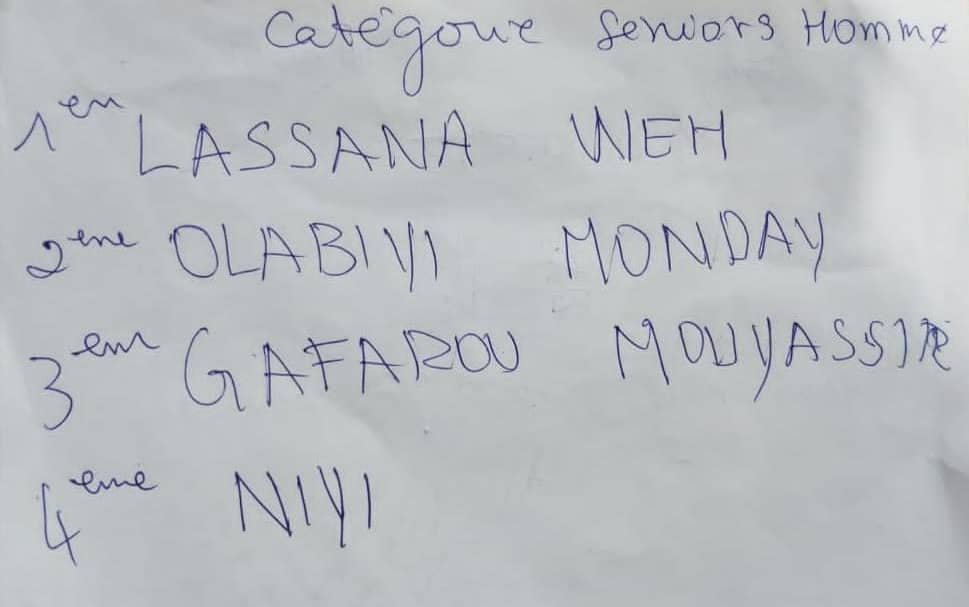 Catégorie Seniors Homme
1er LASSANA WEH
2ème OLABIYI MONDAY
3eme GAFAROU MOUYASSIR
4eme NIYI